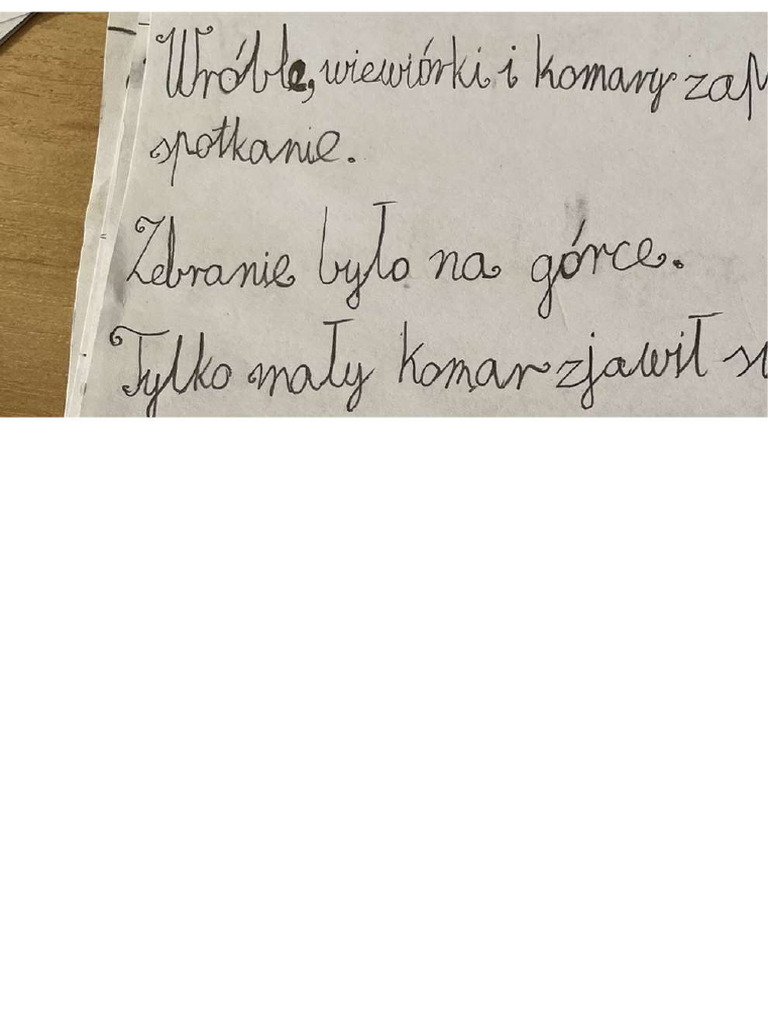 Wróble, wiewiórki i komary
spotkanie.
Zebranie było na górce.
Tylko mały komar zjawił